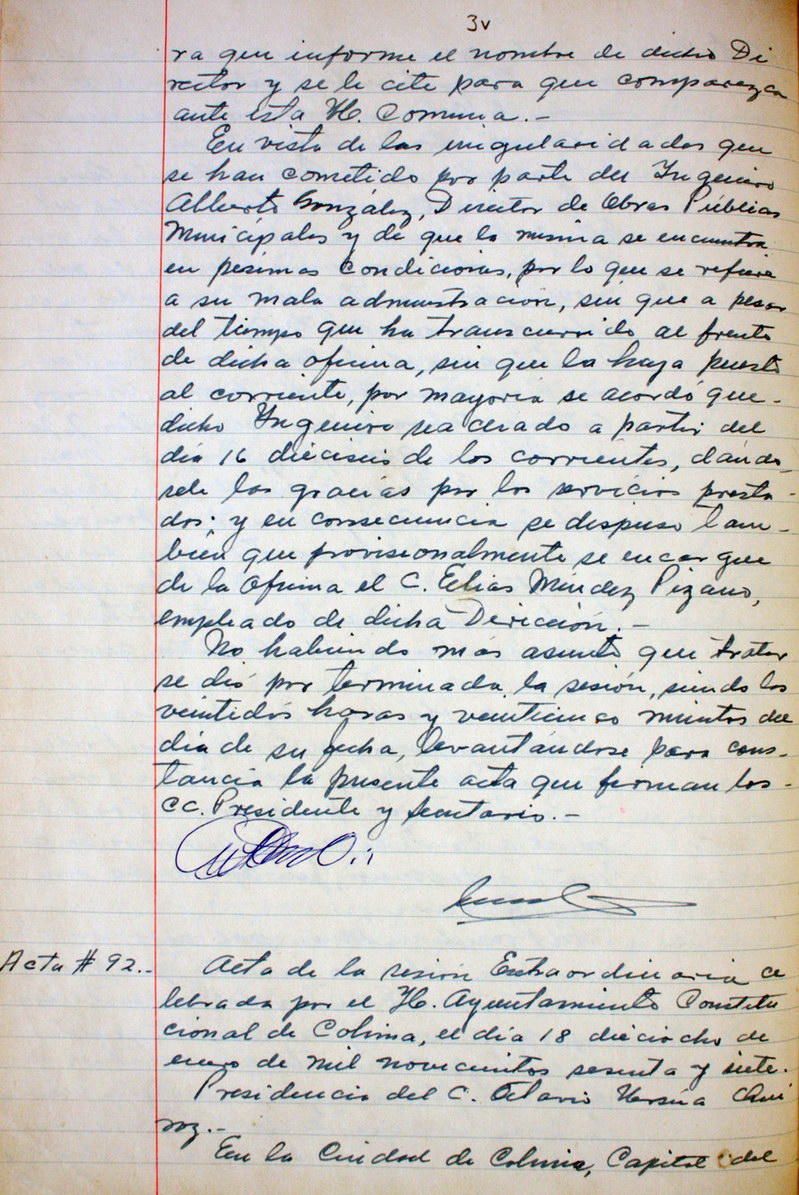 3v
ra que informe el nombre de dicho Di
rector y se le cite para que comparezca
ante esta H. Comuna.-
En vista de las irregularidades que
se han cometido por parte del Ingeniero
Alberto González, Director de Obras Públicas
Municipales y de que la misma se encuentra
en pésimas condiciones, por lo que se refiere
a su mala administración, sin que a pesar
del tiempo que ha transcurrido al frente
de dicha oficina, sin que la haya puesto
al corriente, por mayoría se acordó que-
dicho Ingeniero sea cesado a partir del
día 16 dieciseis de los corrientes, dándo-
sele las gracias por los servicios presta-
dos; y en consecuencia se dispuso tam-
bién que provisionalmente se encargue
de la Oficina el C. Elías Méndez Pizano,
empleado de dicha Dirección.-
No habiendo más asunto que tratar
se dió por terminada la sesión, siendo las
veintidós horas y veinticinco minutos del
día de su fecha, levantándose para cons-
tancia la presente acta que firman los-
CC. Presidente y Secretario.-
Acta # 92.-
Acta de la sesión Extraordinaria ce
lebrada por el H. Ayuntamiento Constitu
cional de Colima, el día 18 dieciocho de
enero de mil novecientos sesenta y siete.
Presidencia del C. Octavio Ursúa Qui
roz.-
En la Ciudad de Colima, Capital del